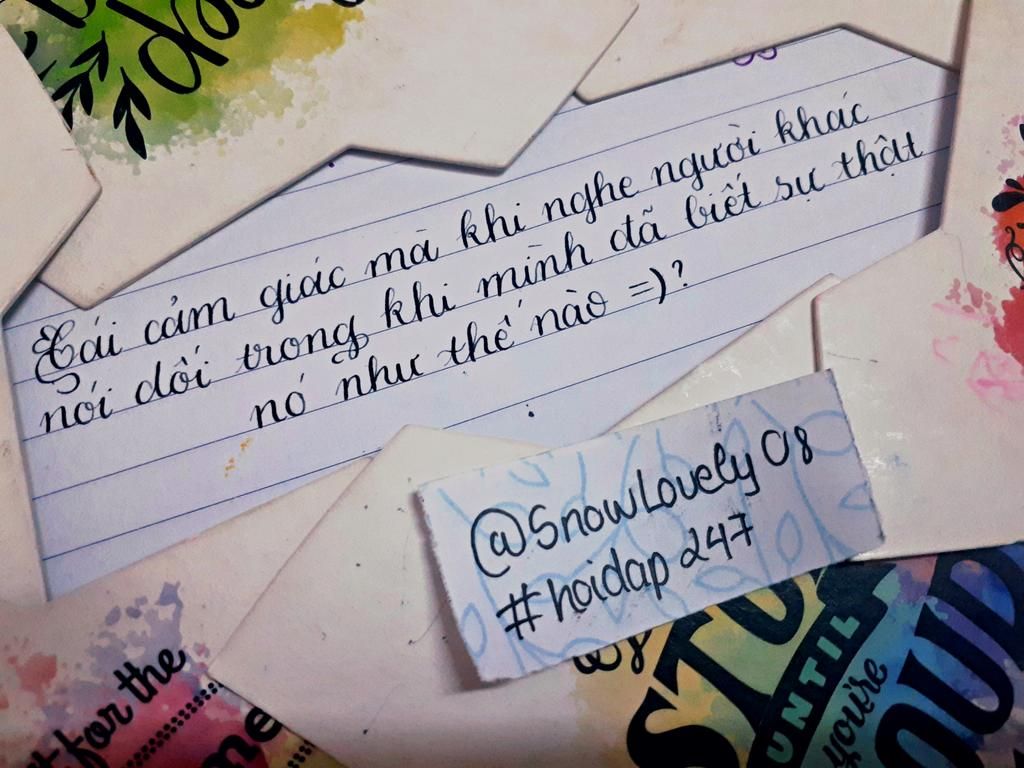 Cái cảm giác mà khi nghe người khác
nói dối trong khi mình đã biết sự thật
nó như thế nào =)?
@SnowLovely08
#hoidap247
for the
UNTIL
you're